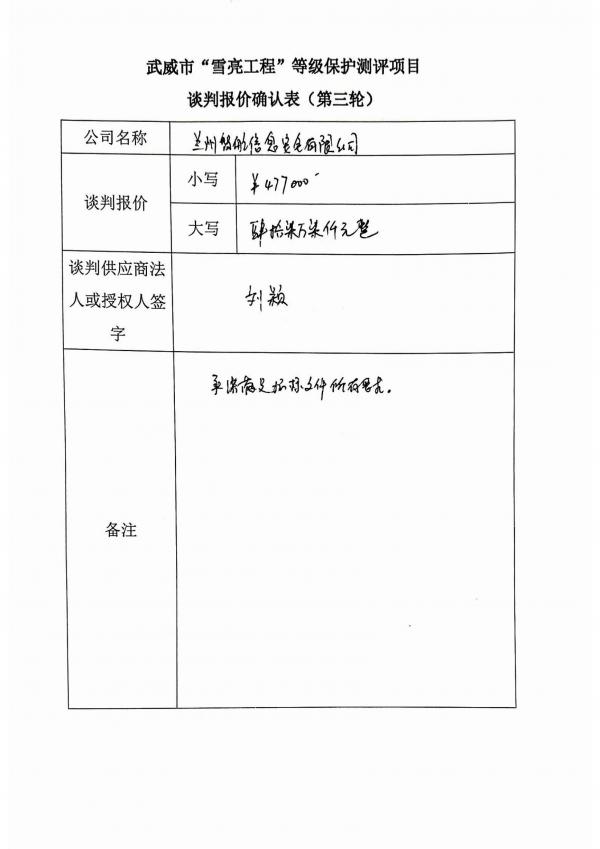 武威市“雪亮工程”等级保护测评项目
谈判报价确认表（第三轮）
公司名称
兰州 信息安全有限公司
谈判报价
小写
￥477000
大写
肆拾柒万柒仟元整
谈判供应商法
人或授权人签
字
刘颖
备注
承诺满足招标文件所有要求。